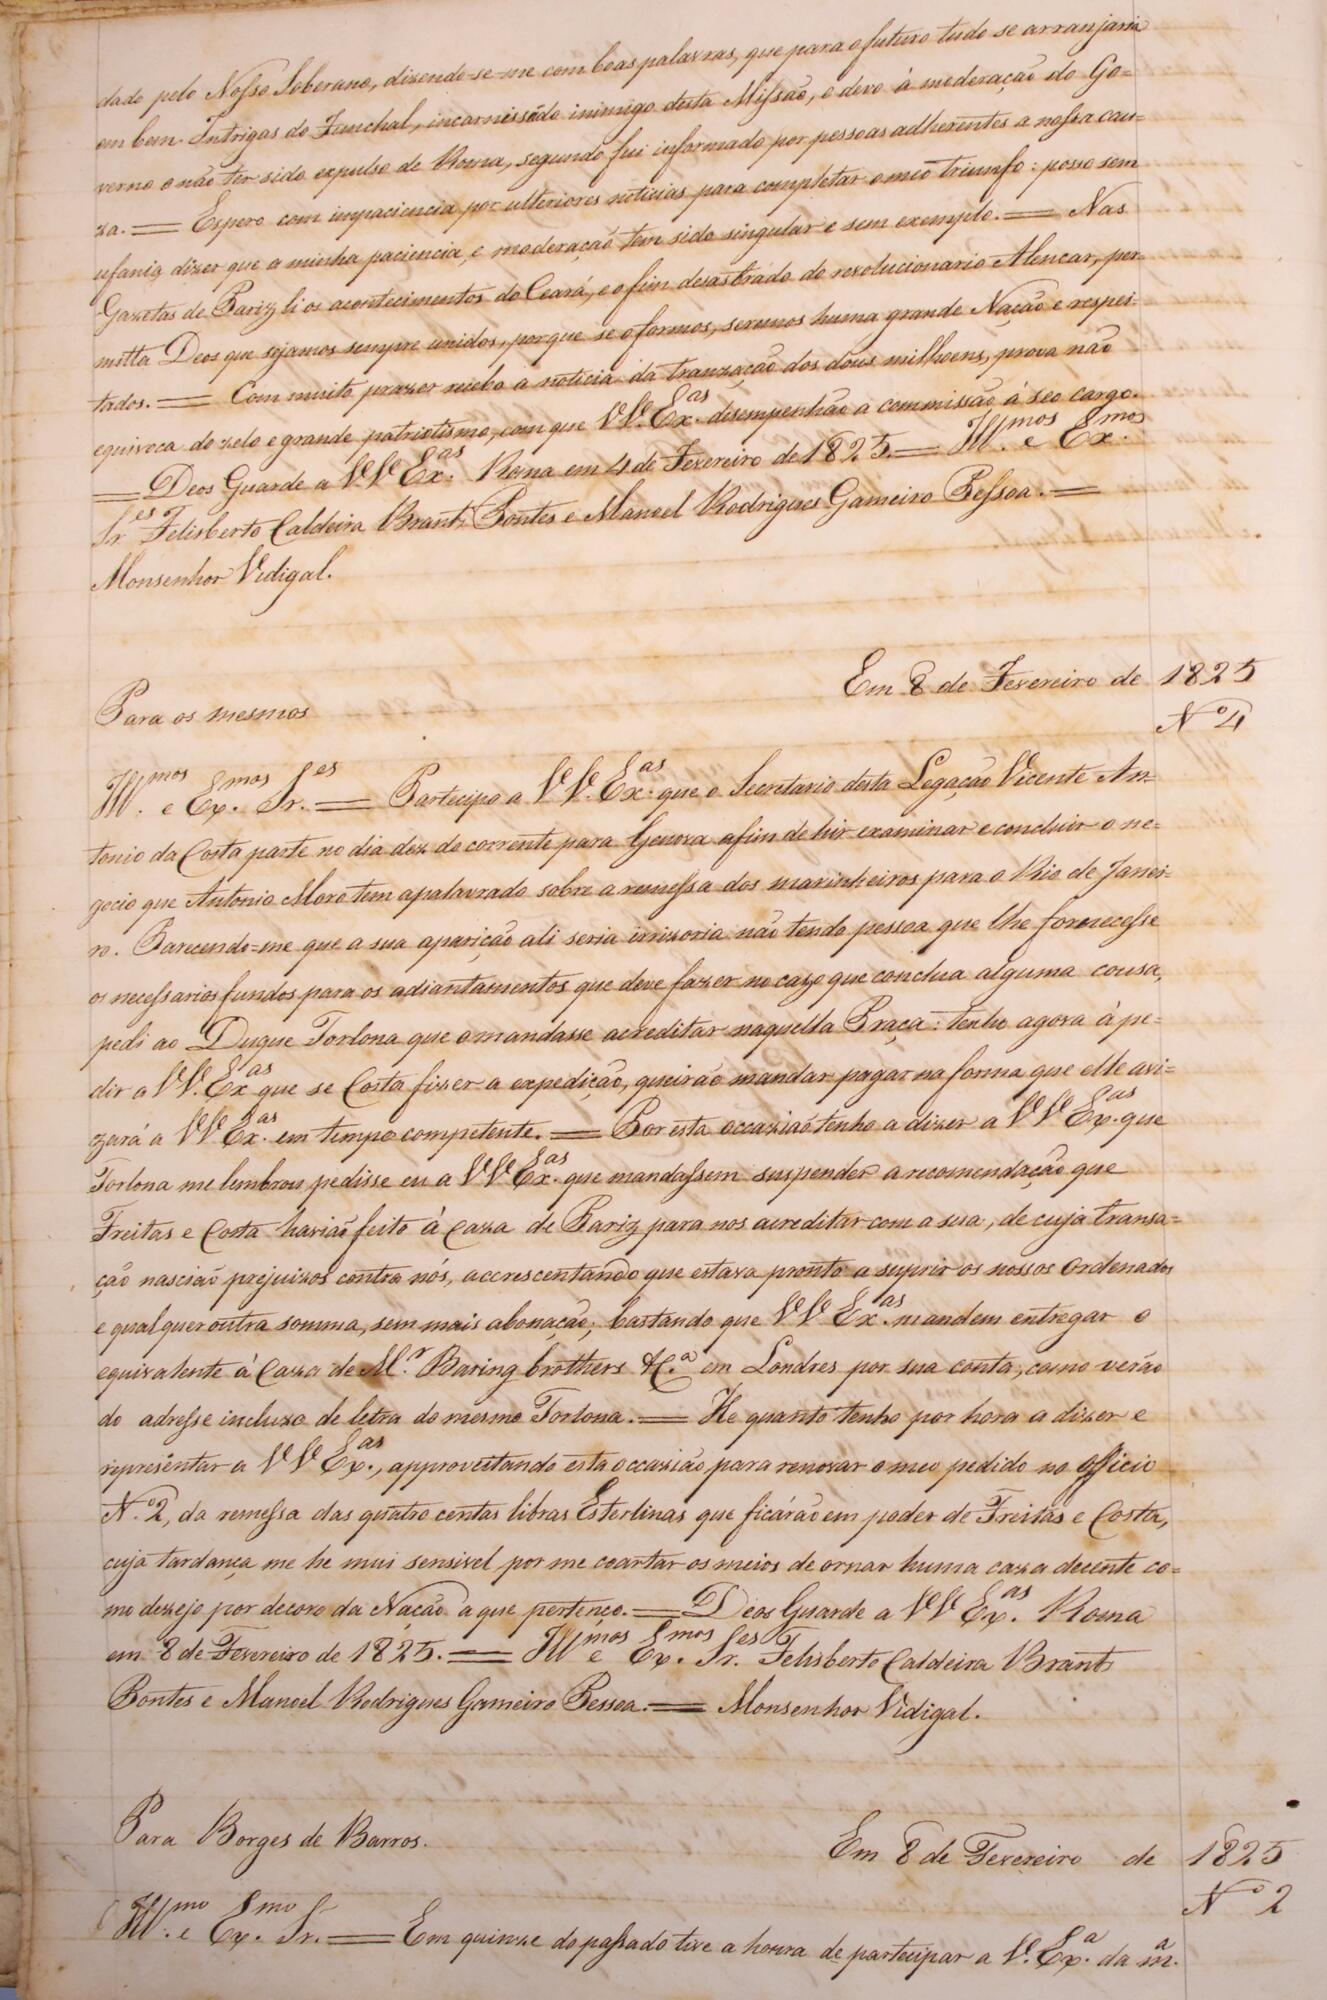 dado pelo Nosso Soberano, dizendo-se-me com boas palavras, que para o futuro tudo se arranjaria
em bem. Intrigas do Funchal, incarnissádo inimigo desta Missão, e devo à moderação do Go=
verno o não ter sido expulso de Roma, segundo fui informado por pessoas adherentes a nossa cau=
za. = Espero com impaciencia por ulteriores noticias para completar o meo triunfo: posso sem
ufania dizer que a minha paciencia, e moderação tem sido singular e sem exemplo. = Nas
Gazetas de Pariz li os acontecimentos do Ceará, e o fim desastrado do revolucionario Alencar, per=
mitta Deos que sejamos sempre unidos, porque se o formos, seremos huma grande Nação e respei=
tados. = Com muito prazer recebo a noticia da tranzação dos dous milhoens, prova não
equivoca do zelo e grande patriotismo, com que VV. Ex.as desempenhão a commissão à seo cargo.
= Deos Guarde a VV. Ex.as Roma em 4 de Fevereiro de 1825. = Ill.mos e Ex.mos
Sr.es Felisberto Caldeira Brant Pontes e Manoel Rodrigues Gameiro Pessoa. =
Monsenhor Vidigal.
Em 8 de Fevereiro de 1825
Para os mesmos
Nº 4
Ill.mos e Ex.mos Sr.es = Partecipo a VV. Ex.as que o Secretario desta Legação Vicente An=
tonio da Costa parte no dia dez do corrente para Genova afim de hir examinar e concluir o ne=
gocio que Antonio Moro tem apalavrado sobre a remessa dos marinheiros para o Rio de Janei=
ro. Parecendo=me que a sua aparição ali seria irrizoria não tendo pessoa que lhe fornecesse
os necessarios fundos para os adiantamentos que deve fazer no cazo que conclua alguma cousa,
pedi ao Duque Torlona que o mandasse acreditar naquella Praça: tenho agora à pe=
dir a VV. Ex.as que se Costa fizer a expedição, queirão mandar pagar na forma que elle avi=
zará a VV. Ex.as em tempo competente. = Por esta occazião tenho a dizer a VV. Ex.as que
Torlona me lembrou pedisse eu a VV. Ex.as que mandassem suspender a recomendação que
Freitas e Costa havião feito à Caza de Pariz para nos acreditar com a sua, de cuja transa=
ção nascião prejuizos contra nós, accrescentando que estava pronto a suprir os nossos Ordenados
e qualquer outra somma, sem mais abonação; bastando que VV. Ex.as mandem entregar o
equivalente à Caza de M.r Baring brothers & C.a em Londres por sua conta, como verão
do adresse incluzo de letra do mesmo Torlona. = He quanto tenho por hora a dizer e
representar a VV. Ex.as, approveitando esta occazião para renovar o meo pedido no Officio
N.º 2, da remessa das quatro centas libras Esterlinas que ficárão em poder de Freitas e Costa,
cuja tardança me he mui sensivel por me coartar os meios de ornar huma caza decente co=
mo dezejo por decoro da Nação a que pertenço. = Deos Guarde a VV. Ex.as Roma
em 8 de Fevereiro de 1825. = Ill.mos e Ex.mos Sr.es Felisberto Caldeira Brant
Pontes e Manoel Rodrigues Gameiro Pessoa. = Monsenhor Vidigal.
Para Borges de Barros.
Em 8 de Fevereiro de 1825
Nº 2
Ill.mo e Ex.mo Sr. = Em quinze do passado tive a honra de partecipar a V. Ex.a da m.a